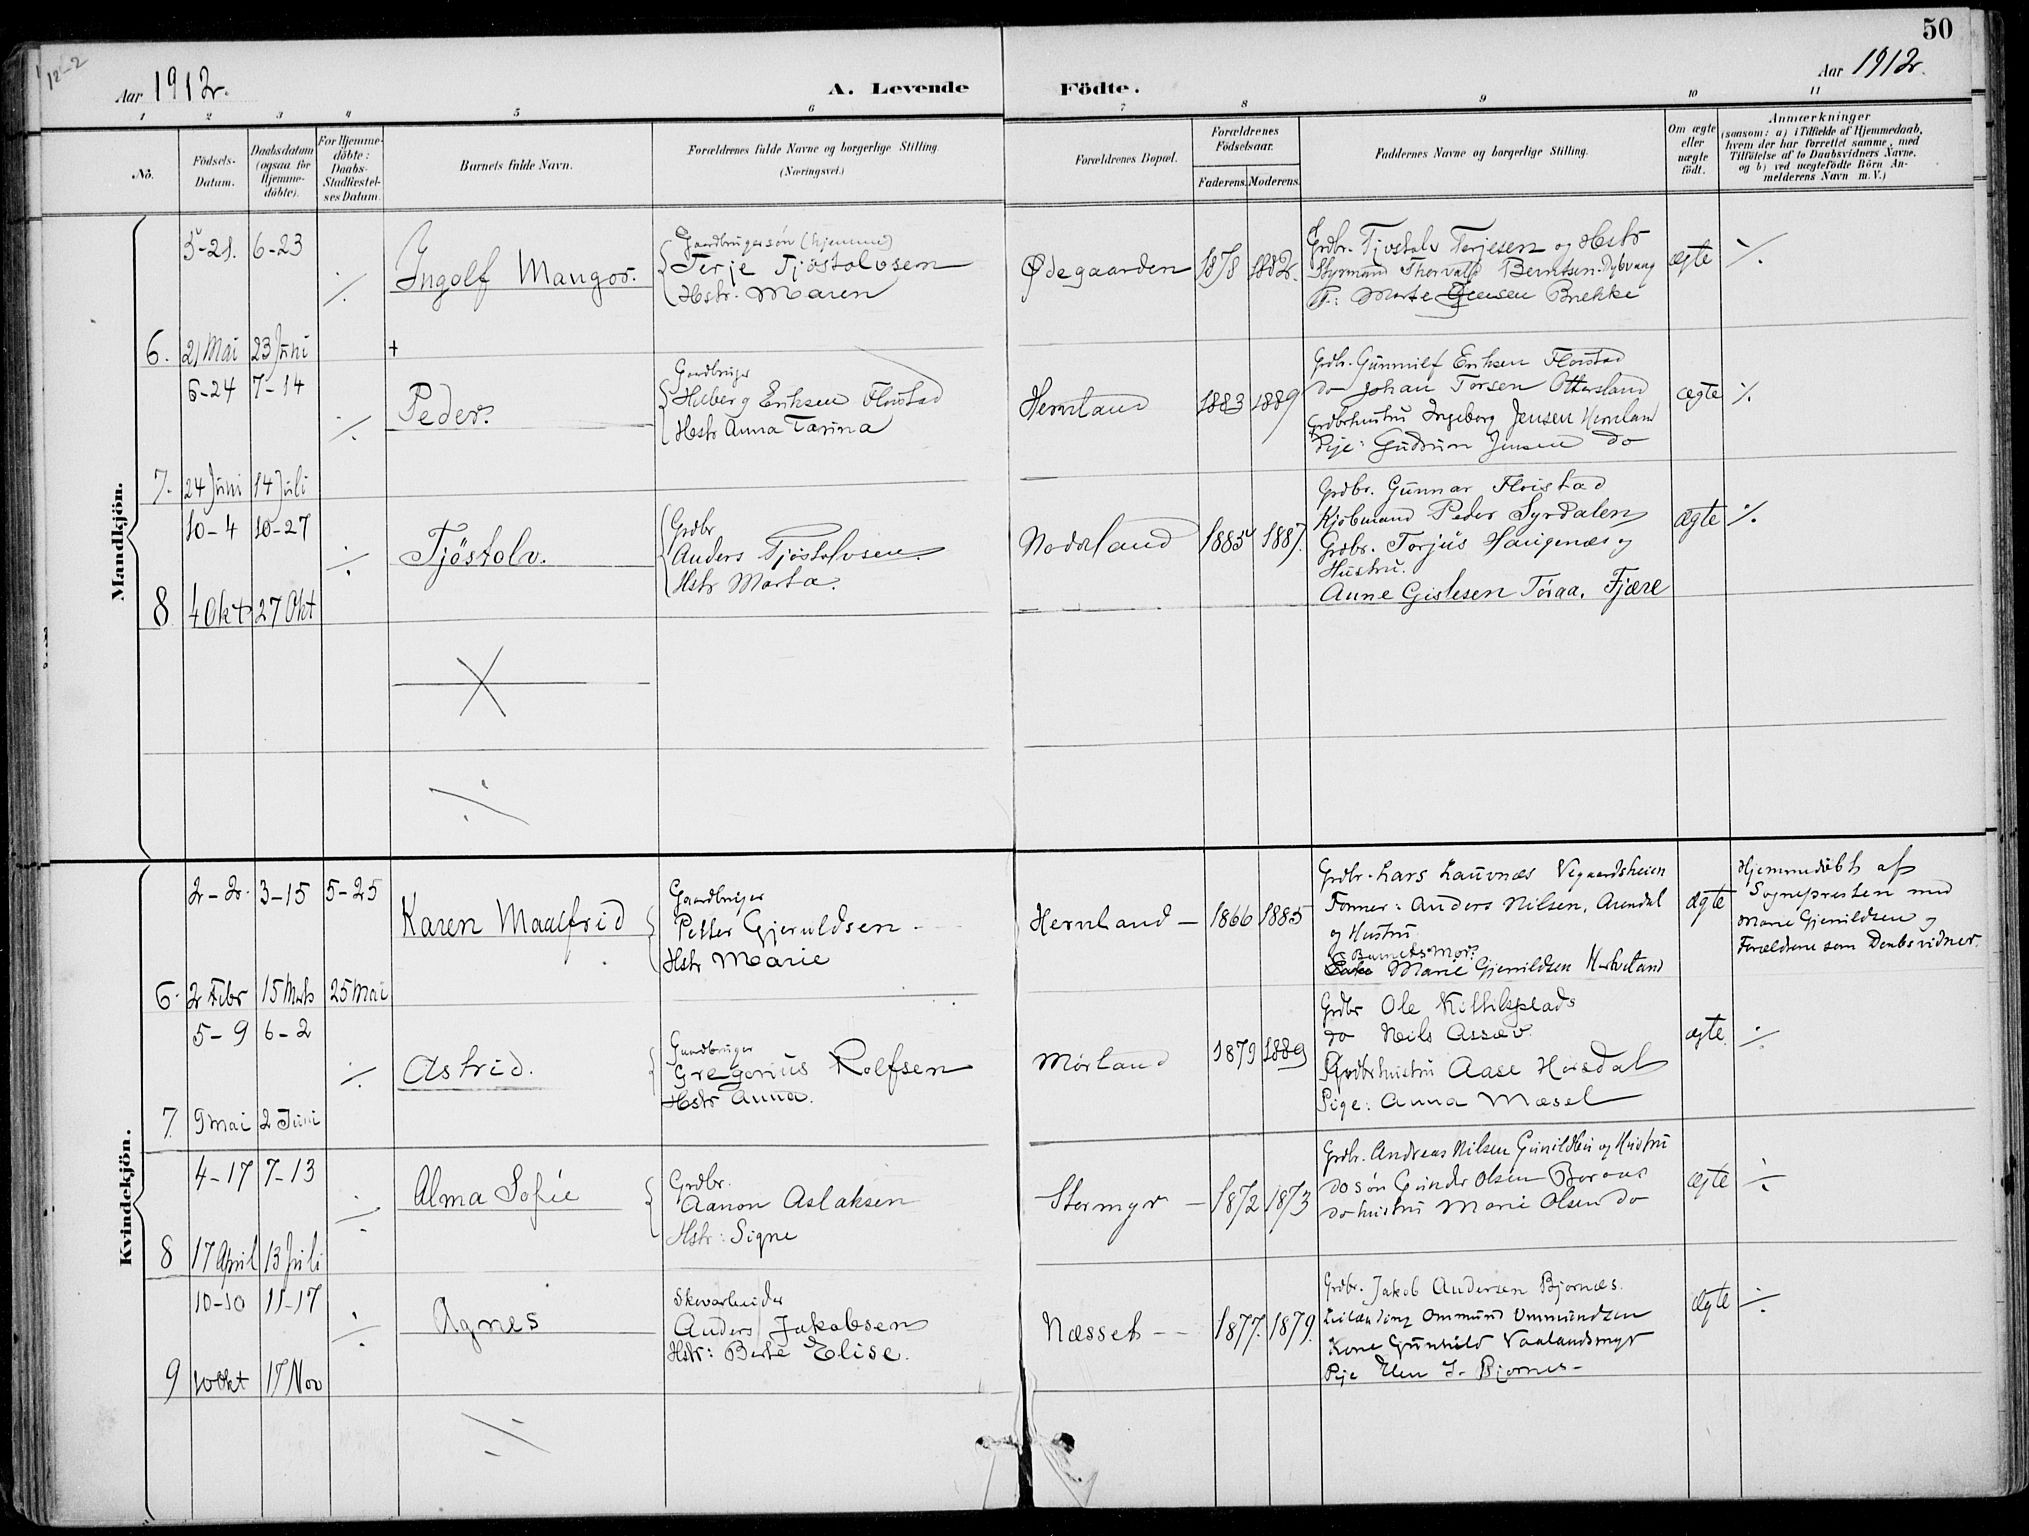 50
12-2
Aar 1912.
A. Levende Födte.
Aar 1912.
1 2 3 4 5 6 7 8 9 10 11
No.
Födsels-
Datum.
Daabsdatum
(ogsaa for
Hjemme-
döbte).
For Hjemme-
döbte:
Daabs-
Stadfæstel-
ses Datum.
Barnets fulde Navn.
Forældrenes fulde Navne og borgerlige Stilling.
(Næringsvei.)
Forældrenes Bopæl.
Forældrenes
Födselsaar.
Faderens. Moderens.
Faddernes Navne og borgerlige Stilling.
Om ægte
eller
uægte
födt.
Anmærkninger
(saasom: a) i Tilfælde af Hjemmedaab,
hvem der har forrettet samme, med
Tilföielse af to Daabsvidners Navne,
og b) ved uægtefödte Börn An-
melderens Navn m. V.)
Mandkjön.
5-21. 6-23
6. 21 Mai 23 Juni
Ingolf Mangor.
Gaardbrugersøn (hjemme)
Terje Tjöstolvsen
Hstr. Maren
Ødegaarden 1878 1882.
Grdbr. Tjostolv Terjesen og Hstr
Styrmand Thorvald Berntsen Dybvaag
P: Marte Jensen Brekke
ægte ./.
6-24 7-14
7. 24 Juni 14 Juli
Peder.
Gaardbruger
Huberg Eriksen Flovstad
Hstr Anna Tarina
Hernland 1883 1889
Grdbr. Gunnulf Eriksen Flovstad
do Johan Torsen Ottersland
Grdbrhustru Ingeborg Jensen Hernland
Pije: Gudrun Jensen do
ægte ./.
10-4 10-27
8 4 Okt 27 Okt
Tjöstolv.
Grdbr
Anders Tjöstolvsen.
Hstr Marta.
Nodeland 1885 1887.
Grdbr. Gunnar Flovstad
Kjöbmand Peder Syrdalen
Grdbr. Torjus Haugenæs og
Hustru.
Anne Gislesen Toraa. Fjære
ægte ./.
Kvindekjön.
2-2. 3-15 5-25
6. 2 Febr 15 Mrts 25 Mai
Karen Maalfrid
Gaardbruger
Petter Gjeruldsen
Hstr Marie
Hernland 1866 1885
Grdbr. Lars Lauvnæs Vegaardsheien
Tömmer: Anders Nilsen, Arendal
og Hustru
Barnets Mor:
Marie Gjeruldsen
ægte
Hjemmedöbt af
Sognepresten med
Marie Gjeruldsen og
Forældrene som Daabsvidner.
5-9 6-2
7. 9 mai 2 Juni
Astrid.
Gaardbruger
Gregorius Rolfsen
Hstr Anna.
Mörland 1879 1889
Grdbr Ole Kittilsplads
do Neils Assev
Grdbrhustru Aase Hovsdal
Pige: Anna Mæsel
ægte.
4-17 7-13
8 17 April 13 Juli
Alma Sofie
Grdbr.
Aanon Aslaksen
Hstr: Signe
Stormyr 1872 1873
Grdbr. Andreas Nilsen Gunildsbu og Hustru
do søn Gunder Olsen Boraas
do hustru Marie Olsen do
ægte
10-10 11-17
9 10 Okt 17 Nov
Agnes
Skovarbeider
Anders Jakobsen
Hstr: Berte Elise.
Næsset 1877. 1879.
Grdbr. Jakob Andersen Bjornæs.
Ommund Ommundsen
Kone Gunhild Vaalandsmyr
Pije Elen J. Bjornes
ægte